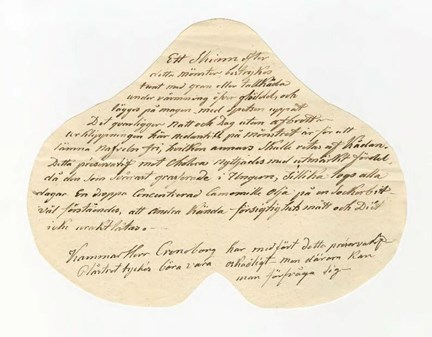 Ett Skinn efter
detta mönster bestrykes
tunt med gran eller Tallkåda
under värmning öfver glödeld, och
lägges på magen med spetsen uppåt
Det qvarligger natt och dag utan afbrott
urklippningen här nedantill på mönstret är för att
lämna nafveln fri, hvilken annars Skulle retas af Kådan.
Detta præservatif mot Cholera nyttjades med utmärkt fördel
då den Som svårast grasserade i Ungern, Tillika togs alla
dagar En droppa Concentrerad Camomille Olja på en Sockerbit
väl förståendes, att andra kända försigtighets mått och Diät
icke uraktlåtas.
KammarHerr Croneborg har medfört detta præservatif
Plåstret tyckes böra vara oskadligt men därom kan
man förfråga sig